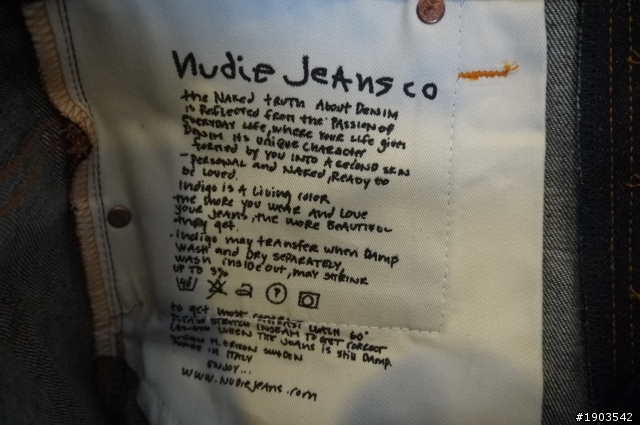 Nudie Jeans co
the NAKED truth About DENIM
is REFLECTED from the PASSION OF
EVERYDAY LIFE, WHERE YOUR LIFE gives
DENIM its UNIQUE CHARACTER
formed BY YOU INTO A SECOND SKIN
- PERSONAL AND NAKED, READY to
be LOVED.
Indigo is A Living color
the more you WEAR AND LOVE
your JEANS, the more BEAUTIFUL
they get.
. INDIGO may TRANSFER when DAMP
WASH and DRY SEPARATELY,
WASH inside out, may SHRINK
UP TO 3%
to get most WASH 60°
PLEASE STRETCH INSEAM TO GET CORRECT
LENGTH WHEN THE JEANS is still DAMP
SWEDEN
MADE in ITALY
ENJOY...
WWW.NudieJeans.com
#1903542